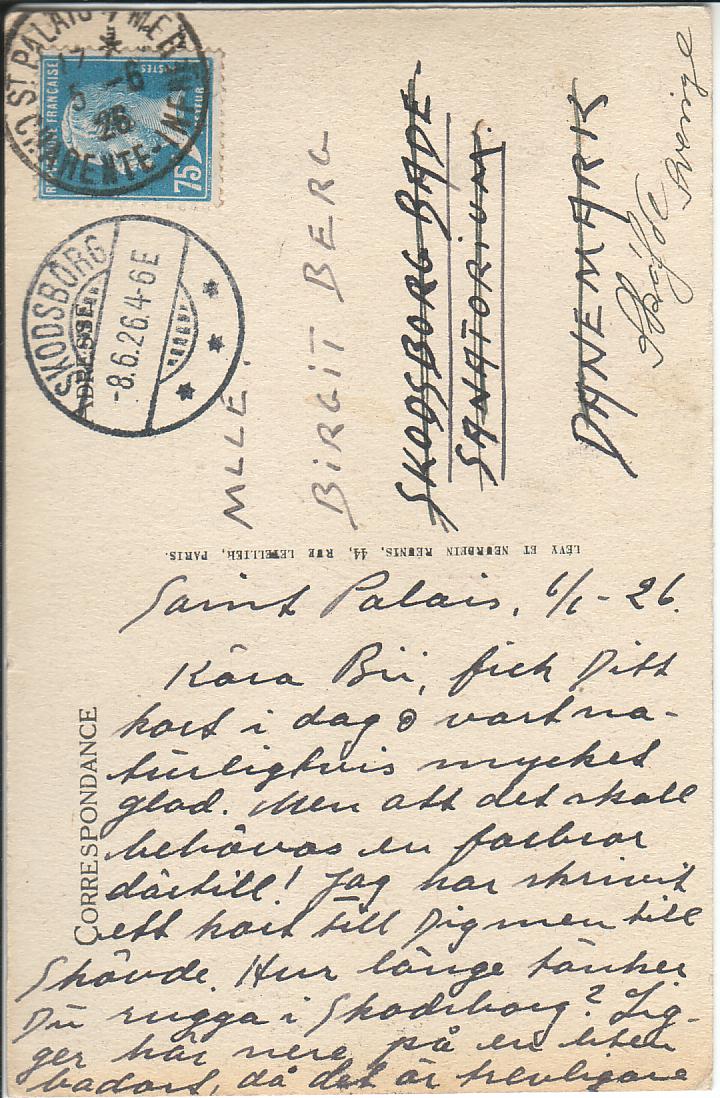 ST PALAIS
17
5 -6
26
CHARENTE-INF
75
SKODSBORG
-8.6.26.4-6E
ADRESSE
MLLE.
BIRGIT BERG
SKODSBORG BADE-
SANATORIUM.
DANEMARK
Sverige
LÉVY ET NEURDEIN RÉUNIS, 44, RUE LETELLIER, PARIS.
CORRESPONDANCE
Saint Palais, 6/6-26.
Kära Bii, fick Ditt
kort i dag o vart na-
turligtvis mycket
glad. Men att det skall
behövas en farbror
därtill! Jag har skrivit
ett kort till Dig men till
Skövde. Hur länge tänker
Du rugga i Skodsborg? Lig-
ger här nere på en liten
badort, då det är trevligare